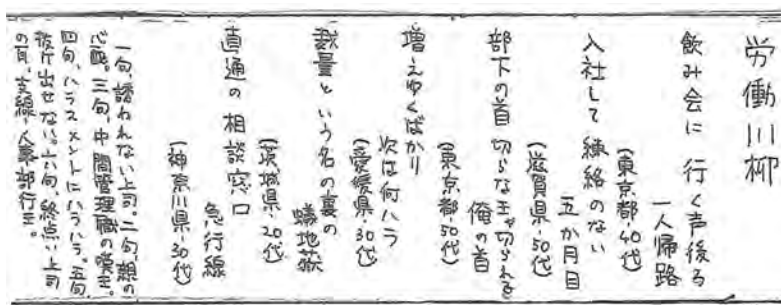 労働川柳
飲み会に 行く声後ろ
一人帰路
(東京都・40代)
入社して 練絡のない
五か月目
(滋賀県・50代)
部下の首 切らなきゃ切られる
俺の首
(東京都・50代)
増えゆくばかり
次は何ハラ
(愛媛県・30代)
裁量という名の裏の
蟻地獄
(茨城県・20代)
直通の相談窓口
急行線
(神奈川県・30代)
一句、誘われない上司。二句、親の
心配。三句、中間管理職の嘆き。
四句、ハラスメントにハラハラ。五句、
抜け出せない。六句、終点、上司
の耳、支線・人事部行き。